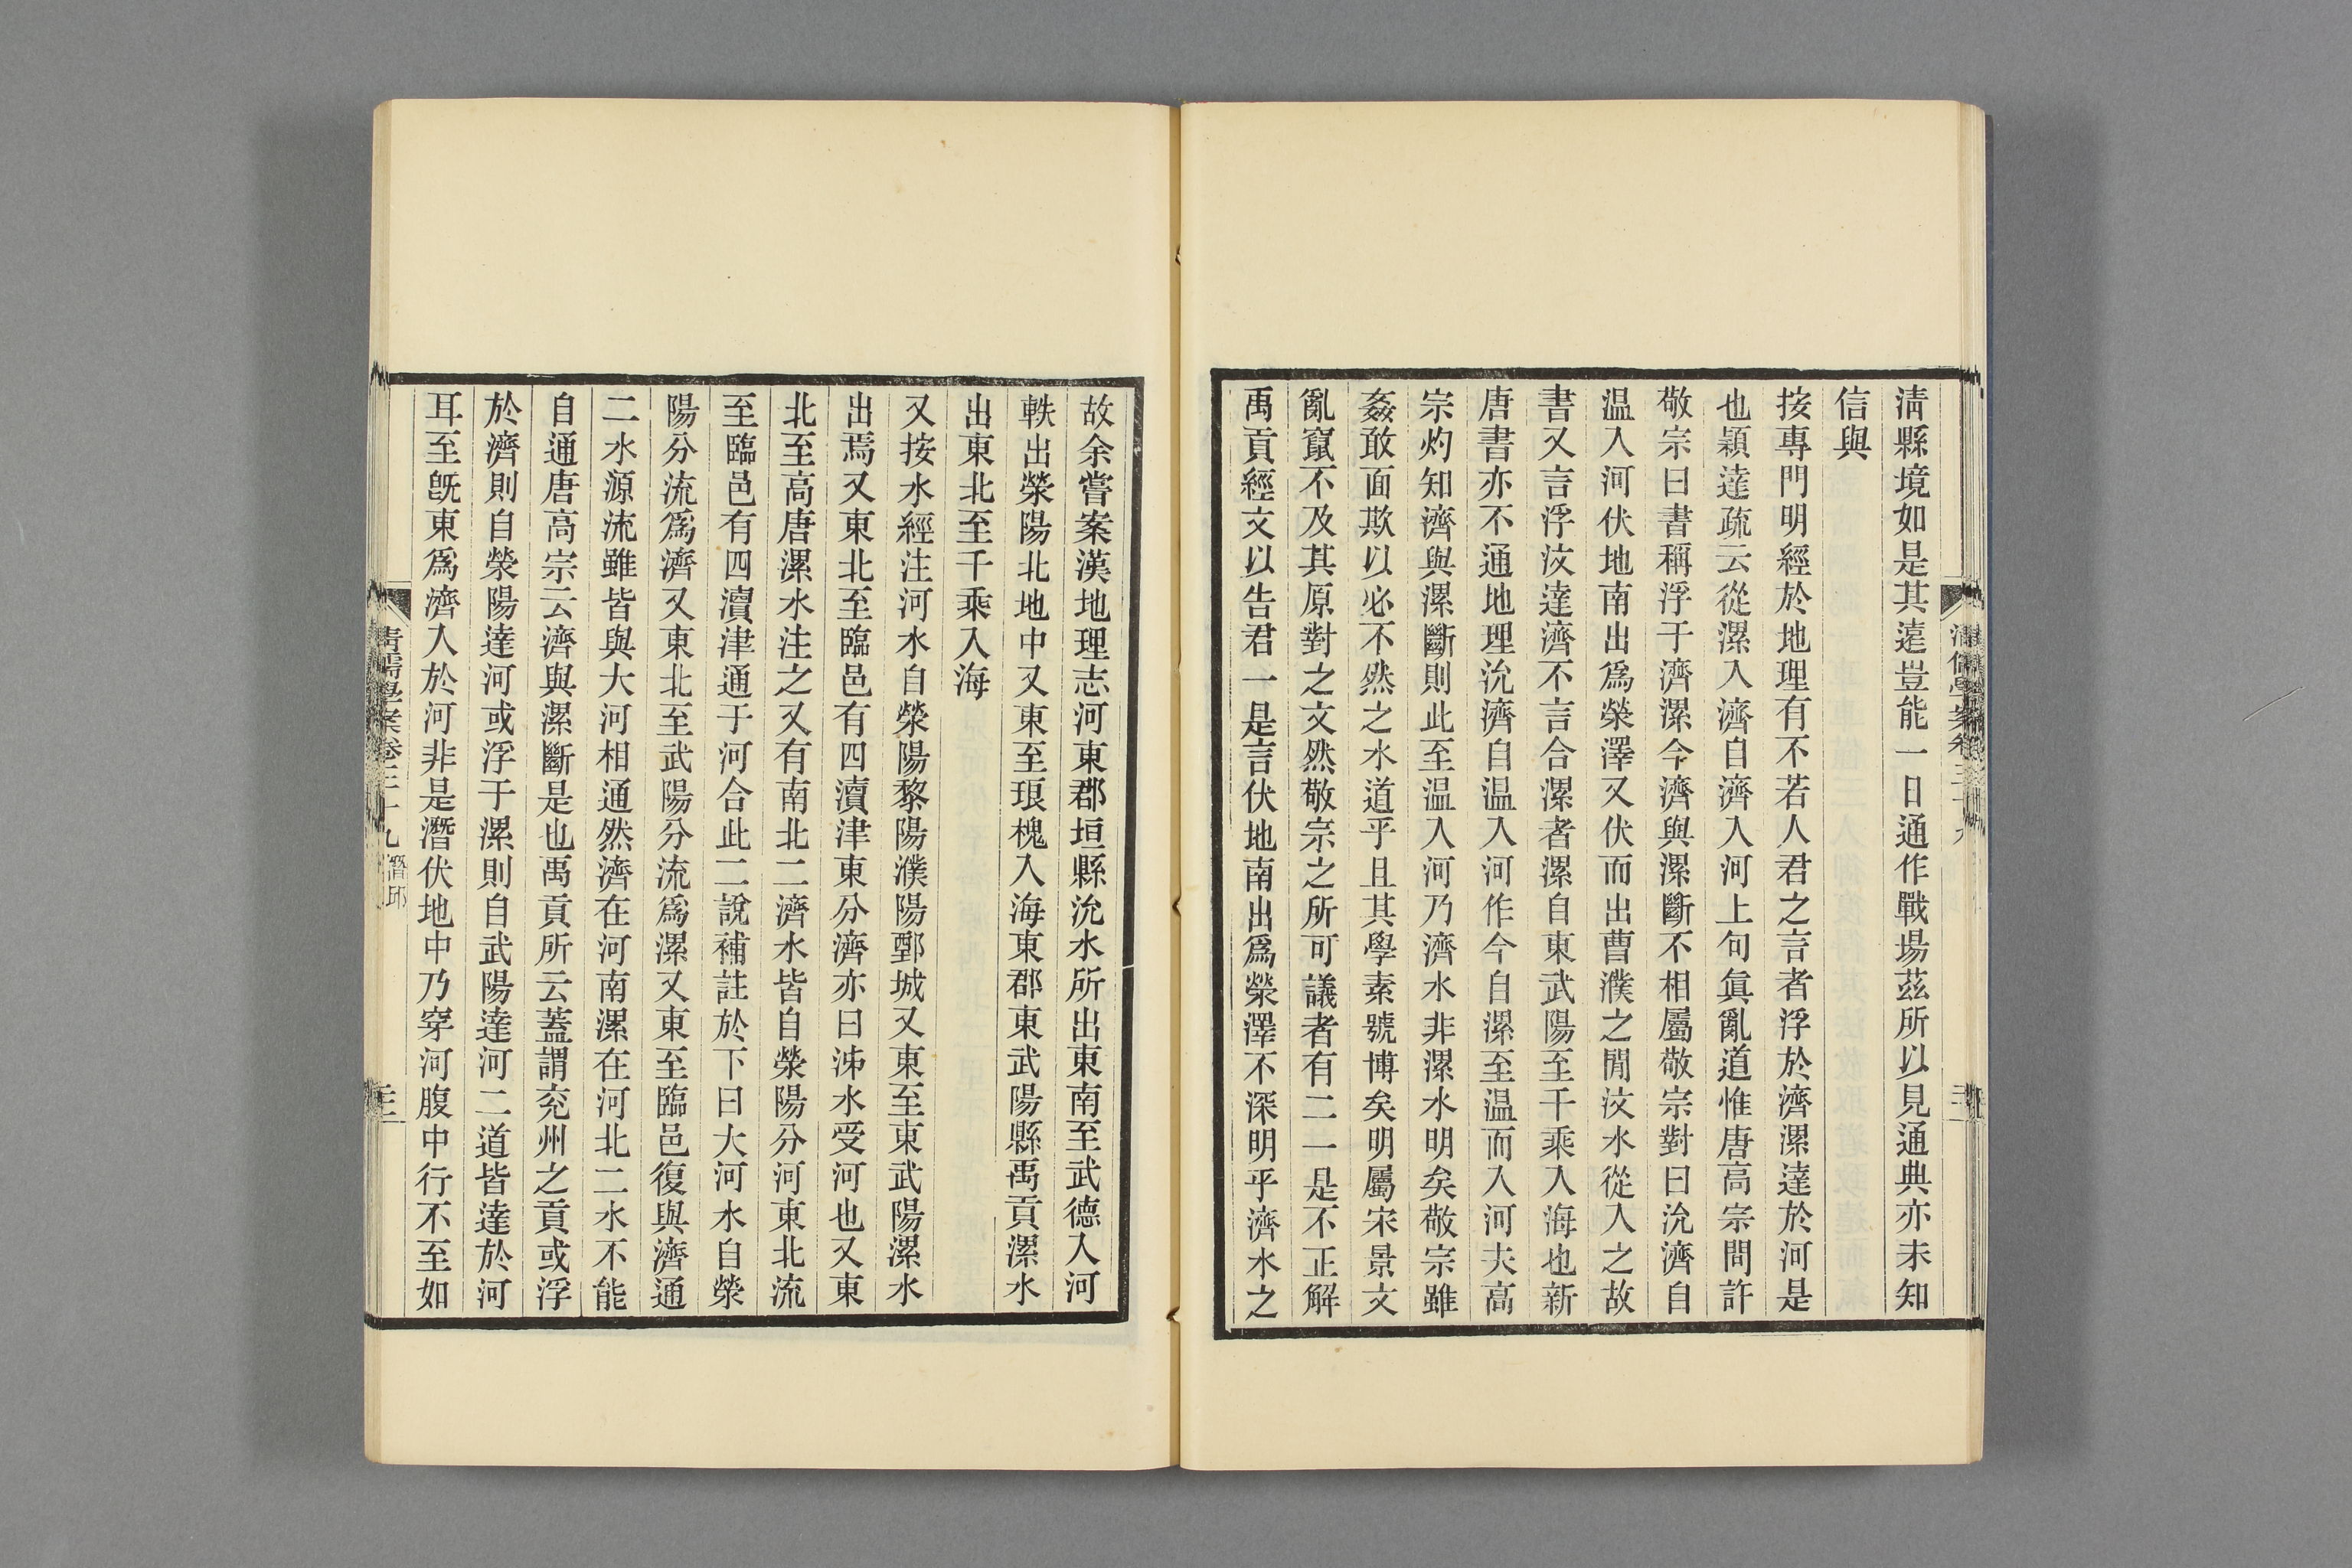 清縣境如是其遠豈能一日通作戰場茲所以見通典亦未知
信與
按專門明經於地理有不若人君之言者浮於濟漯達於河是
也穎達疏云從漯入濟自濟入河上句眞亂道惟唐高宗問許
敬宗曰書稱浮于濟漯今濟與漯斷不相屬敬宗對曰沇濟自
温入河伏地南出爲滎澤又伏而出曹濮之閒汶水從入之故
書又言浮汶達濟不言合漯者漯自東武陽至千乘入海也新
唐書亦不通地理沇濟自温入河作今自漯至温而入河夫高
宗灼知濟與漯斷則此至温入河乃濟水非漯水明矣敬宗雖
姦敢面欺以必不然之水道乎且其學素號博矣明屬宋景文
亂竄不及其原對之文然敬宗之所可議者有二一是不正解
禹貢經文以告君一是言伏地南出爲滎澤不深明乎濟水之
故余嘗案漢地理志河東郡垣縣沇水所出東南至武德入河
軼出滎陽北地中又東至琅槐入海東郡東武陽縣禹貢漯水
出東北至千乘入海
又按水經注河水自滎陽黎陽濮陽鄄城又東至東武陽漯水
出焉又東北至臨邑有四瀆津東分濟亦曰泲水受河也又東
北至高唐漯水注之又有南北二濟水皆自滎陽分河東北流
至臨邑有四瀆津通于河合此二說補註於下曰大河水自滎
陽分流爲濟又東北至武陽分流爲漯又東至臨邑復與濟通
二水源流雖皆與大河相通然濟在河南漯在河北二水不能
自通唐高宗云濟與漯斷是也禹貢所云蓋謂兗州之貢或浮
於濟則自滎陽達河或浮于漯則自武陽達河二道皆達於河
耳至旣東爲濟入於河非是潛伏地中乃穿河腹中行不至如
清儒學案卷三十九 潛邱